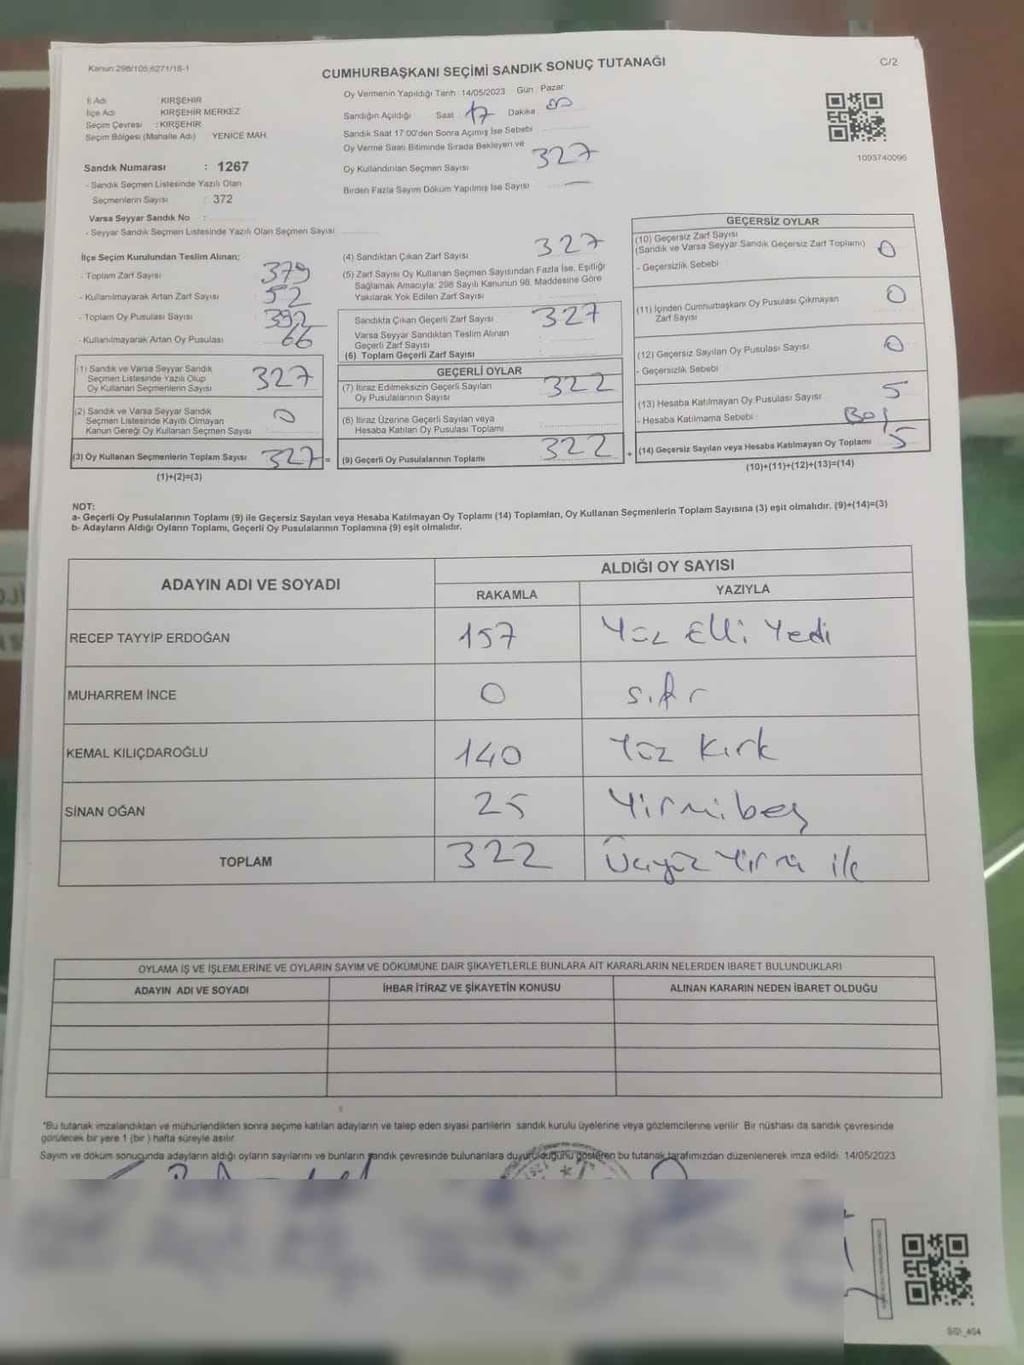 Kanun:298/105,6271/18-1
C/2
CUMHURBAŞKANI SEÇİMİ SANDIK SONUÇ TUTANAĞI
İl Adı : KIRŞEHİR
İlçe Adı KIRŞEHİR MERKEZ
Seçim Çevresi : KIRŞEHİR
Seçim Bölgesi (Mahalle Adı) YENİCE MAH.
Sandık Numarası : 1267
- Sandık Seçmen Listesinde Yazılı Olan
Seçmenlerin Sayısı : 372
Varsa Seyyar Sandık No :
- Seyyar Sandık Seçmen Listesinde Yazılı Olan Seçmen Sayısı
Oy Vermenin Yapıldığı Tarih : 14/05/2023 Gün : Pazar
Sandığın Açıldığı Saat 17 Dakika 00
Sandık Saat 17:00'den Sonra Açılmış İse Sebebi
Oy Verme Saati Bitiminde Sırada Bekleyen ve
Oy Kullandırılan Seçmen Sayısı 327
Birden Fazla Sayım Döküm Yapılmış İse Sayısı —
1093740096
İlçe Seçim Kurulundan Teslim Alınan;
- Toplam Zarf Sayısı 379
- Kullanılmayarak Artan Zarf Sayısı 52
- Toplam Oy Pusulası Sayısı 392
- Kullanılmayarak Artan Oy Pusulası 66
(1) Sandık ve Varsa Seyyar Sandık
Seçmen Listesinde Yazılı Olup
Oy Kullanan Seçmenlerin Sayısı 327
(2) Sandık ve Varsa Seyyar Sandık
Seçmen Listesinde Kayıtlı Olmayan
Kanun Gereği Oy Kullanan Seçmen Sayısı 0
(3) Oy Kullanan Seçmenlerin Toplam Sayısı 327 =
(1)+(2)=(3)
(4) Sandıktan Çıkan Zarf Sayısı 327
(5) Zarf Sayısı Oy Kullanan Seçmen Sayısından Fazla İse, Eşitliği
Sağlamak Amacıyla; 298 Sayılı Kanunun 98. Maddesine Göre
Yakılarak Yok Edilen Zarf Sayısı
Sandıkta Çıkan Geçerli Zarf Sayısı 327
Varsa Seyyar Sandıktan Teslim Alınan
Geçerli Zarf Sayısı
(6) Toplam Geçerli Zarf Sayısı
GEÇERLİ OYLAR
(7) İtiraz Edilmeksizin Geçerli Sayılan
Oy Pusulasının Sayısı 322
(8) İtiraz Üzerine Geçerli Sayılan veya
Hesaba Katılan Oy Pusulası Toplamı
(9) Geçerli Oy Pusulalarının Toplamı 322 +
GEÇERSİZ OYLAR
(10) Geçersiz Zarf Sayısı
(Sandık ve Varsa Seyyar Sandık Geçersiz Zarf Toplamı) 0
- Geçersizlik Sebebi
(11) İçinden Cumhurbaşkanı Oy Pusulası Çıkmayan
Zarf Sayısı 0
(12) Geçersiz Sayılan Oy Pusulası Sayısı 0
- Geçersizlik Sebebi
(13) Hesaba Katılmayan Oy Pusulası Sayısı 5
- Hesaba Katılmama Sebebi : Boş
(14) Geçersiz Sayılan veya Hesaba Katılmayan Oy Toplamı 5
(10)+(11)+(12)+(13)=(14)
NOT:
a- Geçerli Oy Pusulalarının Toplamı (9) ile Geçersiz Sayılan veya Hesaba Katılmayan Oy Toplamı (14) Toplamları, Oy Kullanan Seçmenlerin Toplam Sayısına (3) eşit olmalıdır. (9)+(14)=(3)
b- Adayların Aldığı Oyların Toplamı, Geçerli Oy Pusulalarının Toplamına (9) eşit olmalıdır.
ADAYIN ADI VE SOYADI ALDIĞI OY SAYISI
RAKAMLA YAZIYLA
RECEP TAYYİP ERDOĞAN 157 Yüz Elli Yedi
MUHARREM İNCE 0 sıfır
KEMAL KILIÇDAROĞLU 140 Yüz Kırk
SİNAN OĞAN 25 Yirmibeş
TOPLAM 322 Üçyüz Yirmi iki
OYLAMA İŞ VE İŞLEMLERİNE VE OYLARIN SAYIM VE DÖKÜMÜNE DAİR ŞİKAYETLERLE BUNLARA AİT KARARLARIN NELERDEN İBARET BULUNDUKLARI
ADAYIN ADI VE SOYADI İHBAR İTİRAZ VE ŞİKAYETİN KONUSU ALINAN KARARIN NEDEN İBARET OLDUĞU
*Bu tutanak imzalandıktan ve mühürlendikten sonra seçime katılan adayların ve talep eden siyasi partilerin sandık kurulu üyelerine veya gözlemcilerine verilir. Bir nüshası da sandık çevresinde
görülecek bir yere 1 (bir ) hafta süreyle asılır.
Sayım ve döküm sonucunda adayların aldığı oyların sayılarını ve bunların sandık çevresinde bulunanlara duyurulduğunu gösteren bu tutanak tarafımızdan düzenlenerek imza edildi. 14/05/2023